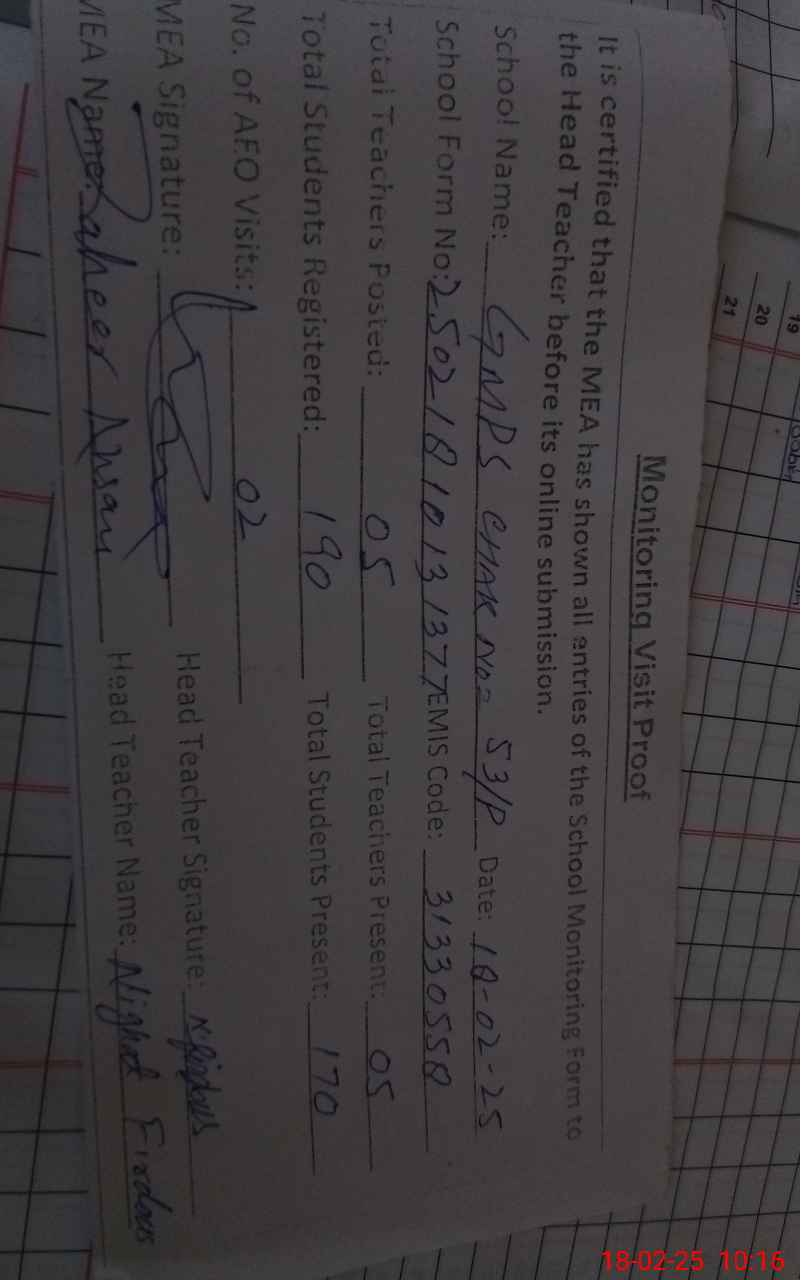 Monitoring Visit Proof
It is certified that the MEA has shown all entries of the School Monitoring Form to
the Head Teacher before its online submission.
School Name: GMPS CHAK No= 53/P Date: 18-02-25
School Form No: 25021810131377 EMIS Code: 31330558
Total Teachers Posted: 05 Total Teachers Present: 05
Total Students Registered: 190 Total Students Present: 170
No. of AEO Visits: 02
MEA Signature: Head Teacher Signature: N.firdous
MEA Name: Zaheer Ahsan Head Teacher Name: Nighat Firdous
19
20
21
18-02-25 10:16